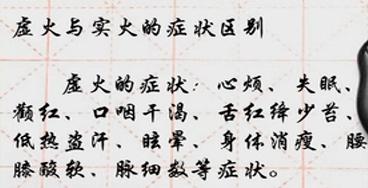 虚火与实火的症状区别
虚火的症状：心烦、失眠、
颧红、口咽干渴、舌红绛少苔、
低热盗汗、眩晕、身体消瘦、腰
膝酸软、脉细数等症状。